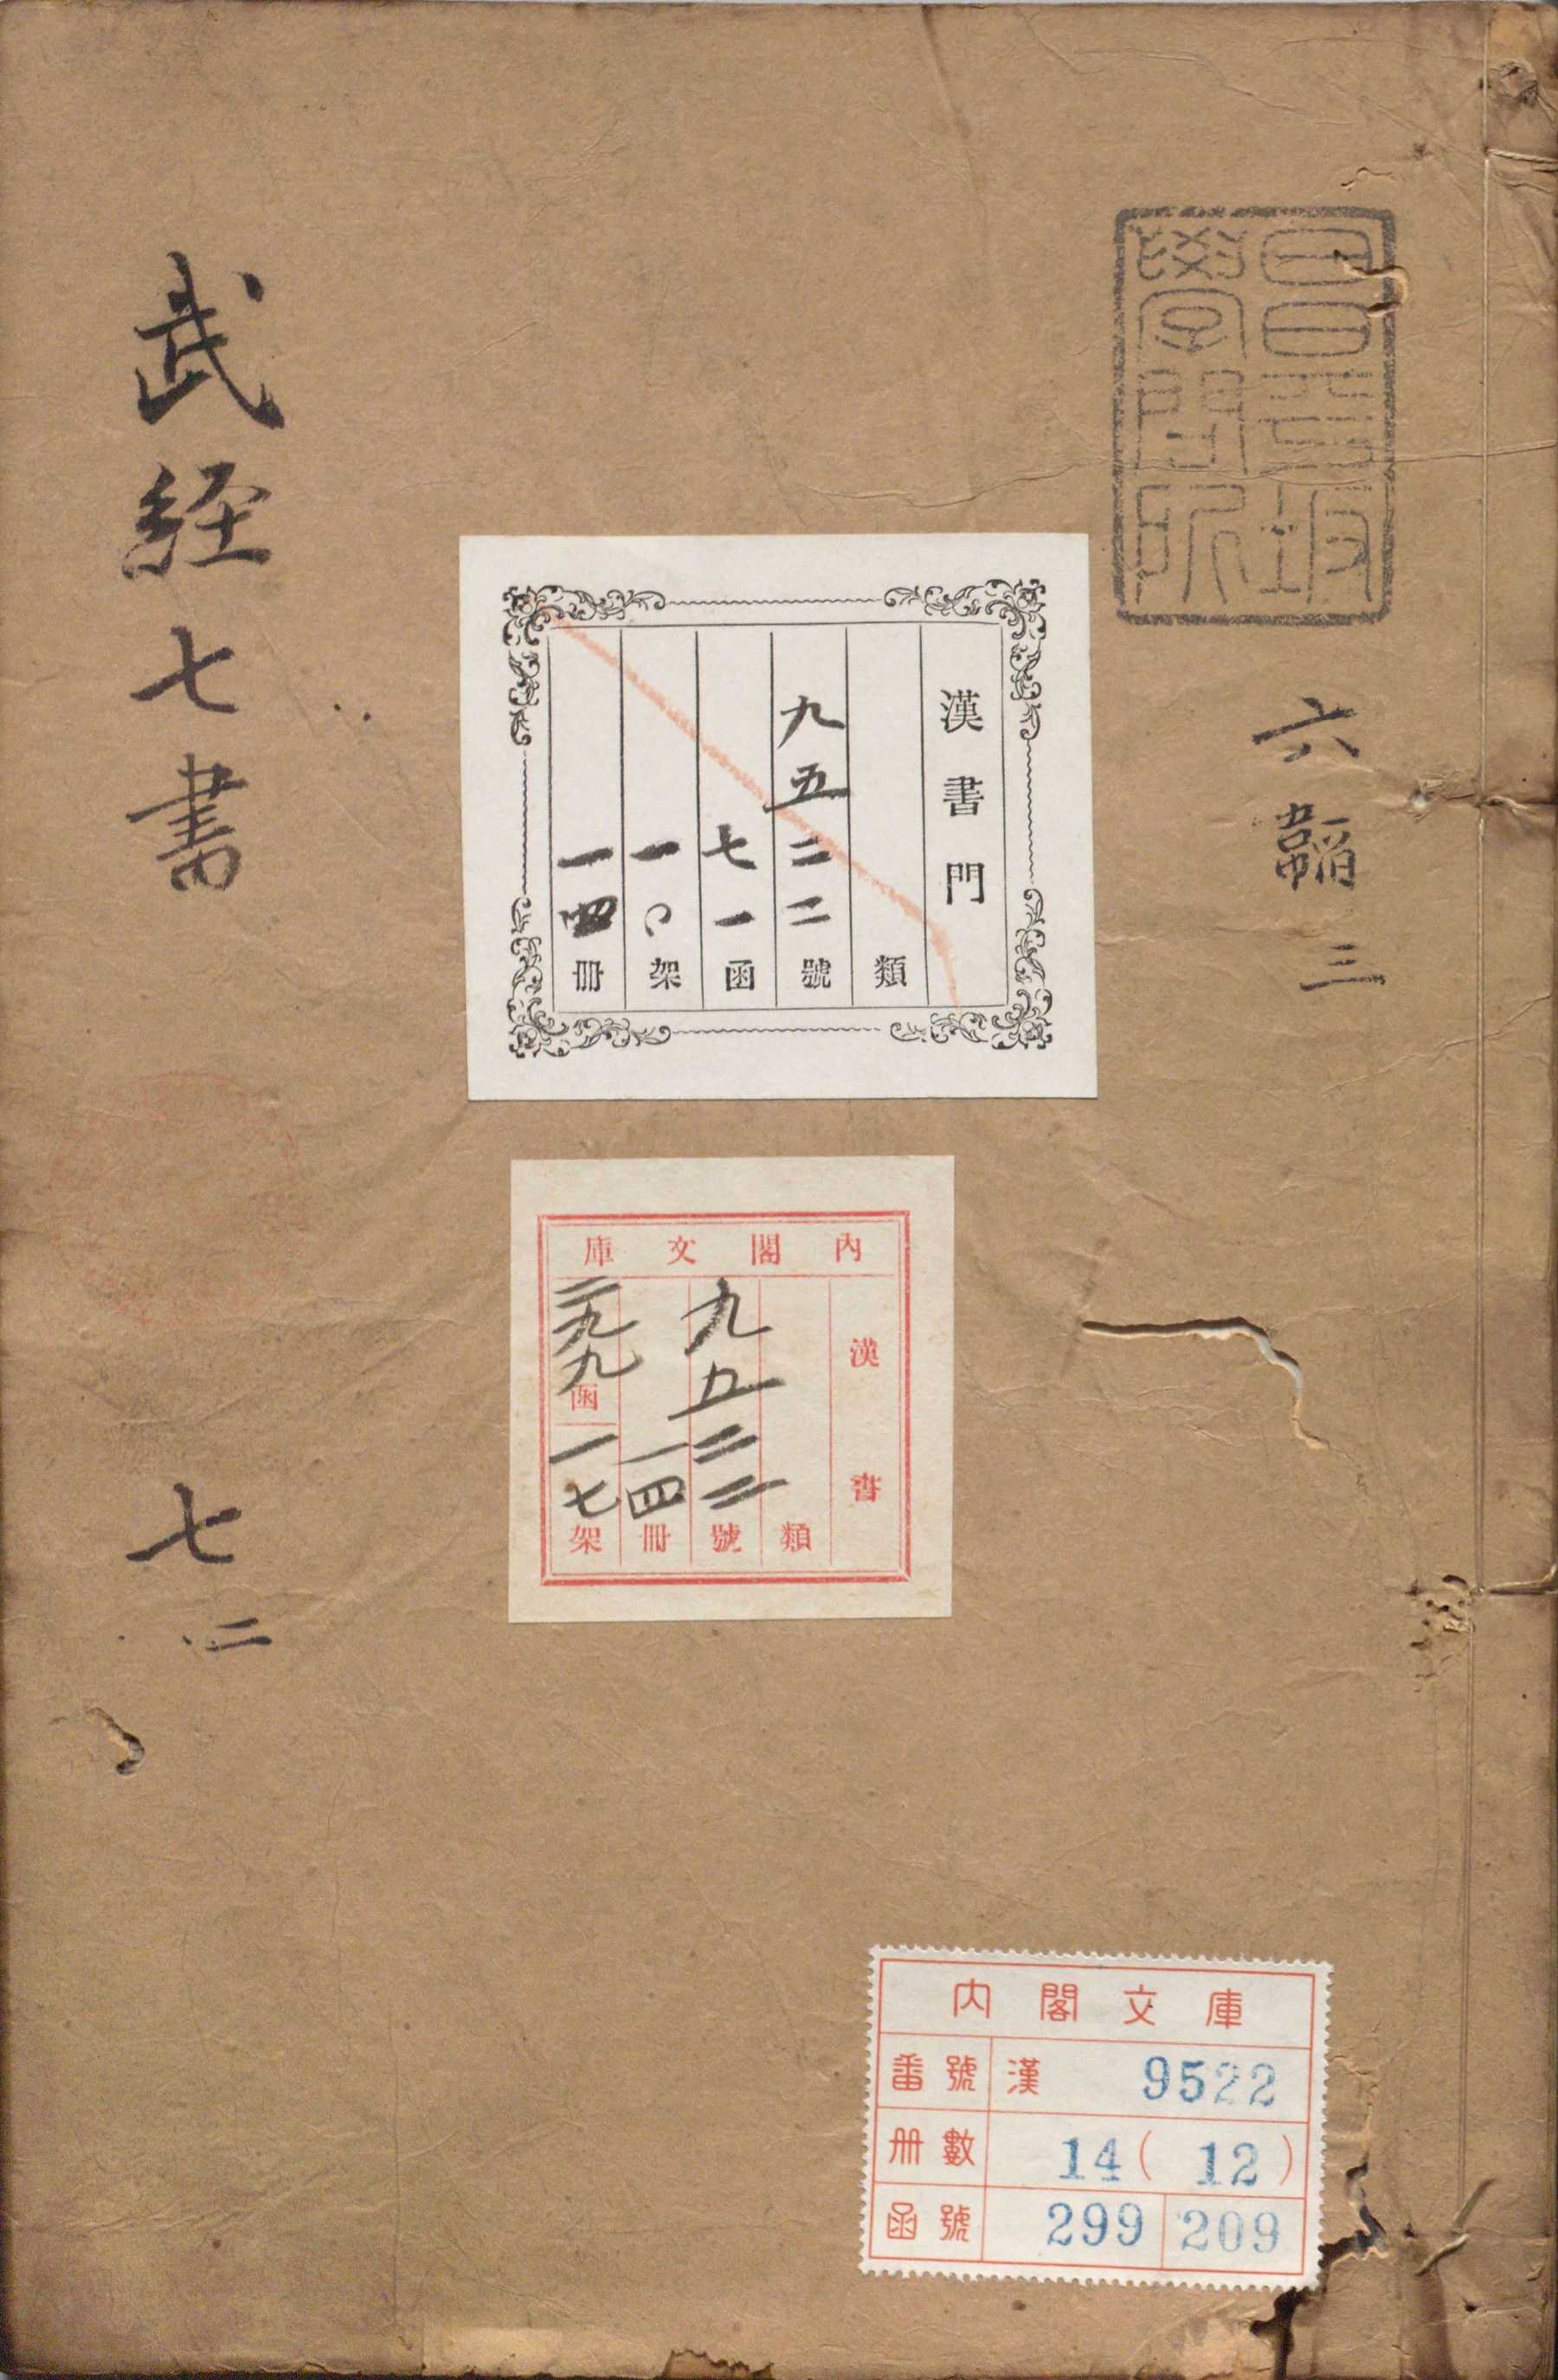 昌平坂
學問所
六韜 三
漢書門
類
九五二二號
七一函
一〇架
一四冊
內閣文庫
漢書
類
九五二二號
一四冊
二九九函
一七架
武経七書
七 二
內閣文庫
番號 漢 9522
冊數 14( 12 )
函號 299 209